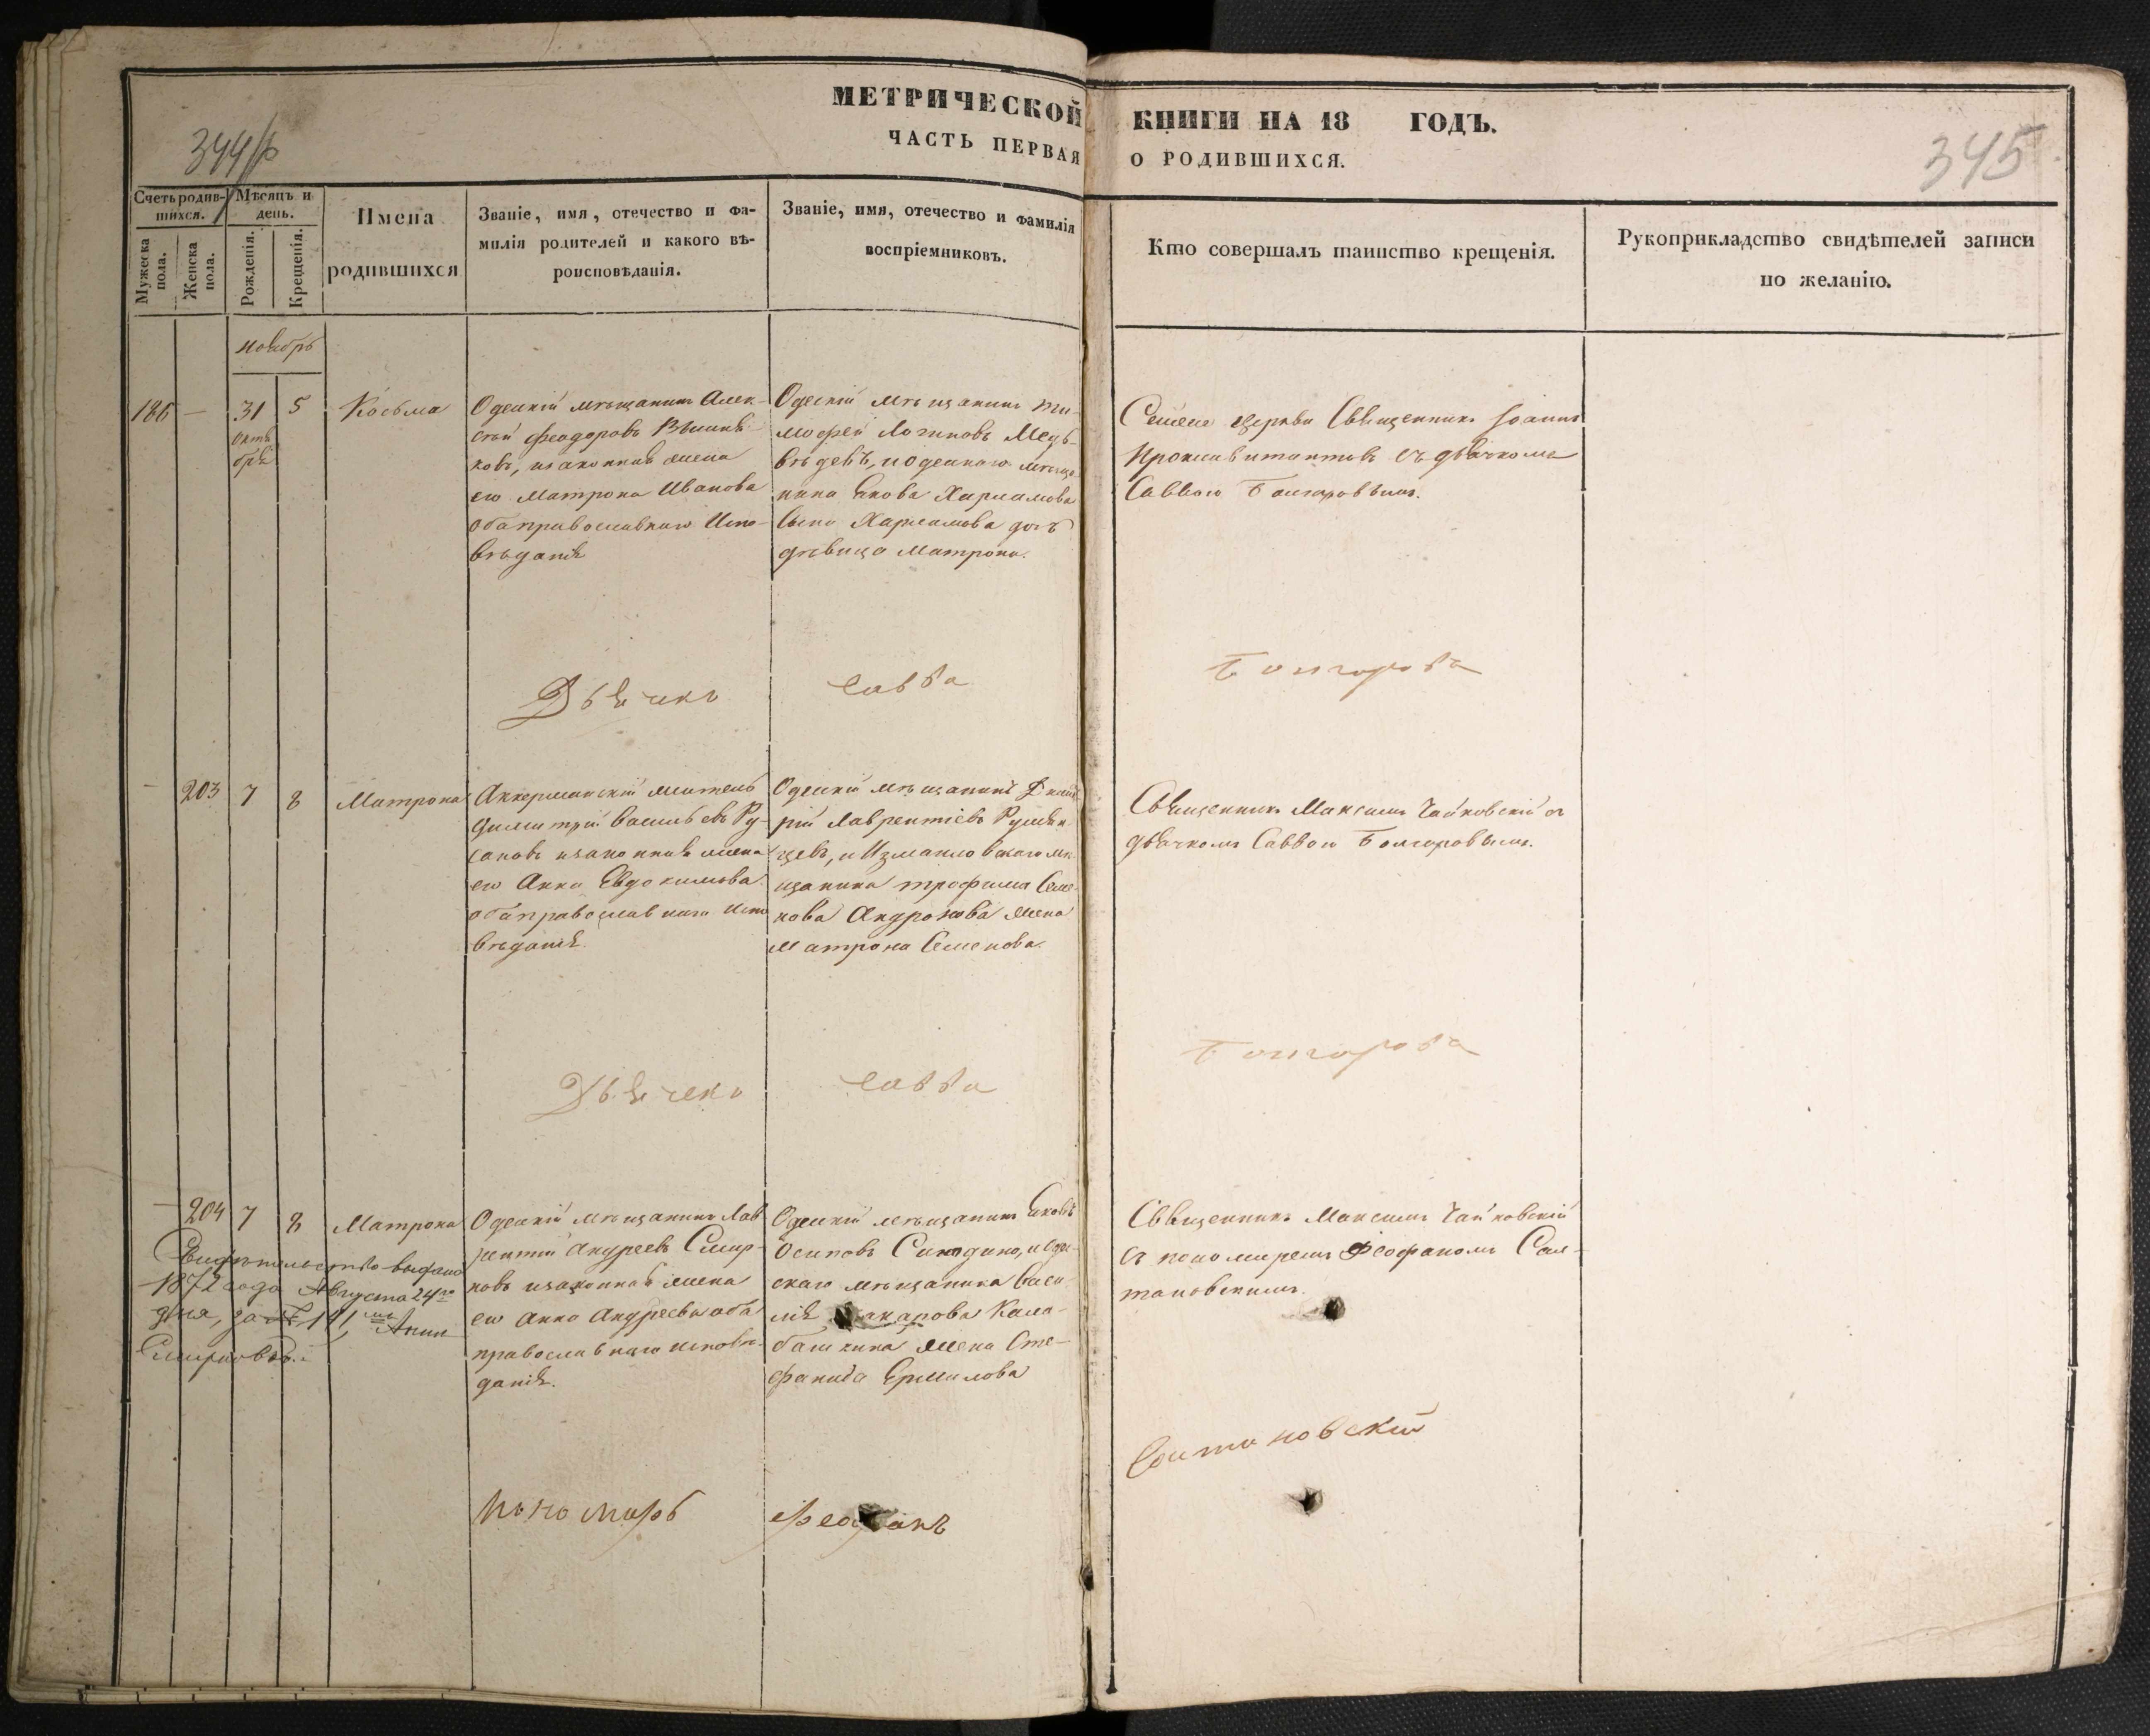 МЕТРИЧЕСКОЙ КНИГИ НА 18 ГОДЪ.
ЧАСТЬ ПЕРВАЯ О РОДИВШИХСЯ.
345
Счетъ родив-
шихся.
Мужеска пола.
Женска пола.
Мѣсяцъ и
день.
Рожденія.
Крещенія.
Имена
родившихся
Званіе, имя, отечество и фа-
милія родителей и какого вѣ-
роисповѣданія.
Званіе, имя, отечество и фамилія
воспріемниковъ.
Кто совершалъ таинство крещенія.
Рукоприкладство свидѣтелей записи
по желанію.
ноябрь
186 — 31 5 Косьма
октя
бря
Одескій мѣщанинъ Алек-
сѣй Феодоровъ
ковъ, изаконная жена
его Матрона Иванова
оба православнаго Испо-
вѣданія
Одескій мѣщанинъ Ти-
мофей Логиновъ Медь-
вѣдевъ, и одескаго мѣща
нина Якова Харламова
сына Харламова дочь
дѣвица Матрона.
Сея церкви Священникъ Іоаннъ
съ дьячкомъ
Саввою Болгаровымъ.
Дьячекъ Савва Болгаровъ
— 203 7 8 Матрона
Аккерманскій житель
Димитрій Васильевъ Ру-
саковъ изаконная жена
его Анна Евдокимова
оба православнаго испо
вѣданія.
Одескій мѣщанинъ
рій Лаврентіевъ Румян
цевъ, и Измаиловскаго мѣ
щанина Трофима Семе-
нова Андронова жена
Матрона Семенова.
Священникъ Максимъ Чайковскій съ
дьячкомъ Саввою Болгаровымъ.
Дьячекъ Савва Болгаровъ
— 204 7 8 Матрона
Свидѣтельство выдано
1872 года Августа 24го
дня, за № 181, Аннѣ
Смирновой.
Одескій мѣщанинъ Лав
рентій Андреевъ Смир-
новъ изаконная жена
его Анна Андреева оба
православнаго исповѣ-
данія.
Одескій мѣщанинъ Яковъ
Осиповъ Синодино, и Оде-
скаго мѣщанина Васи
лія Макарова Кала-
башкина жена Сте-
фанида Ермилова
Священникъ Максимъ Чайковскій
съ пономаремъ Феофаномъ Сол-
тановскимъ.
Пономарь Феофанъ Солтановскій